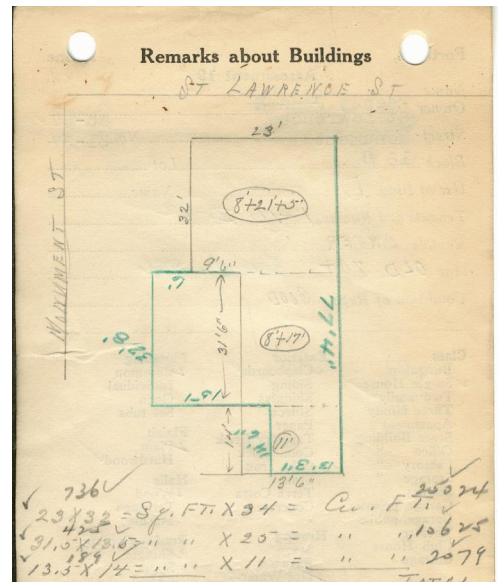 Remarks about Buildings
ST LAWRENCE ST
MONUMENT ST
23'
32'
8'+21'+5'
9'6"
6'
31'6"
8'+17'
77'4"
32'8"
15'1"
14'
14'6"
11'
12'3"
13'6"
736
25024
23X32 = Sq. FT. X 34 = Cu. FT.
425
31.5X13.5 = " " X 25 = " " 10625
189
13.5X14 = " " X 11 " " 2079
TOTAL